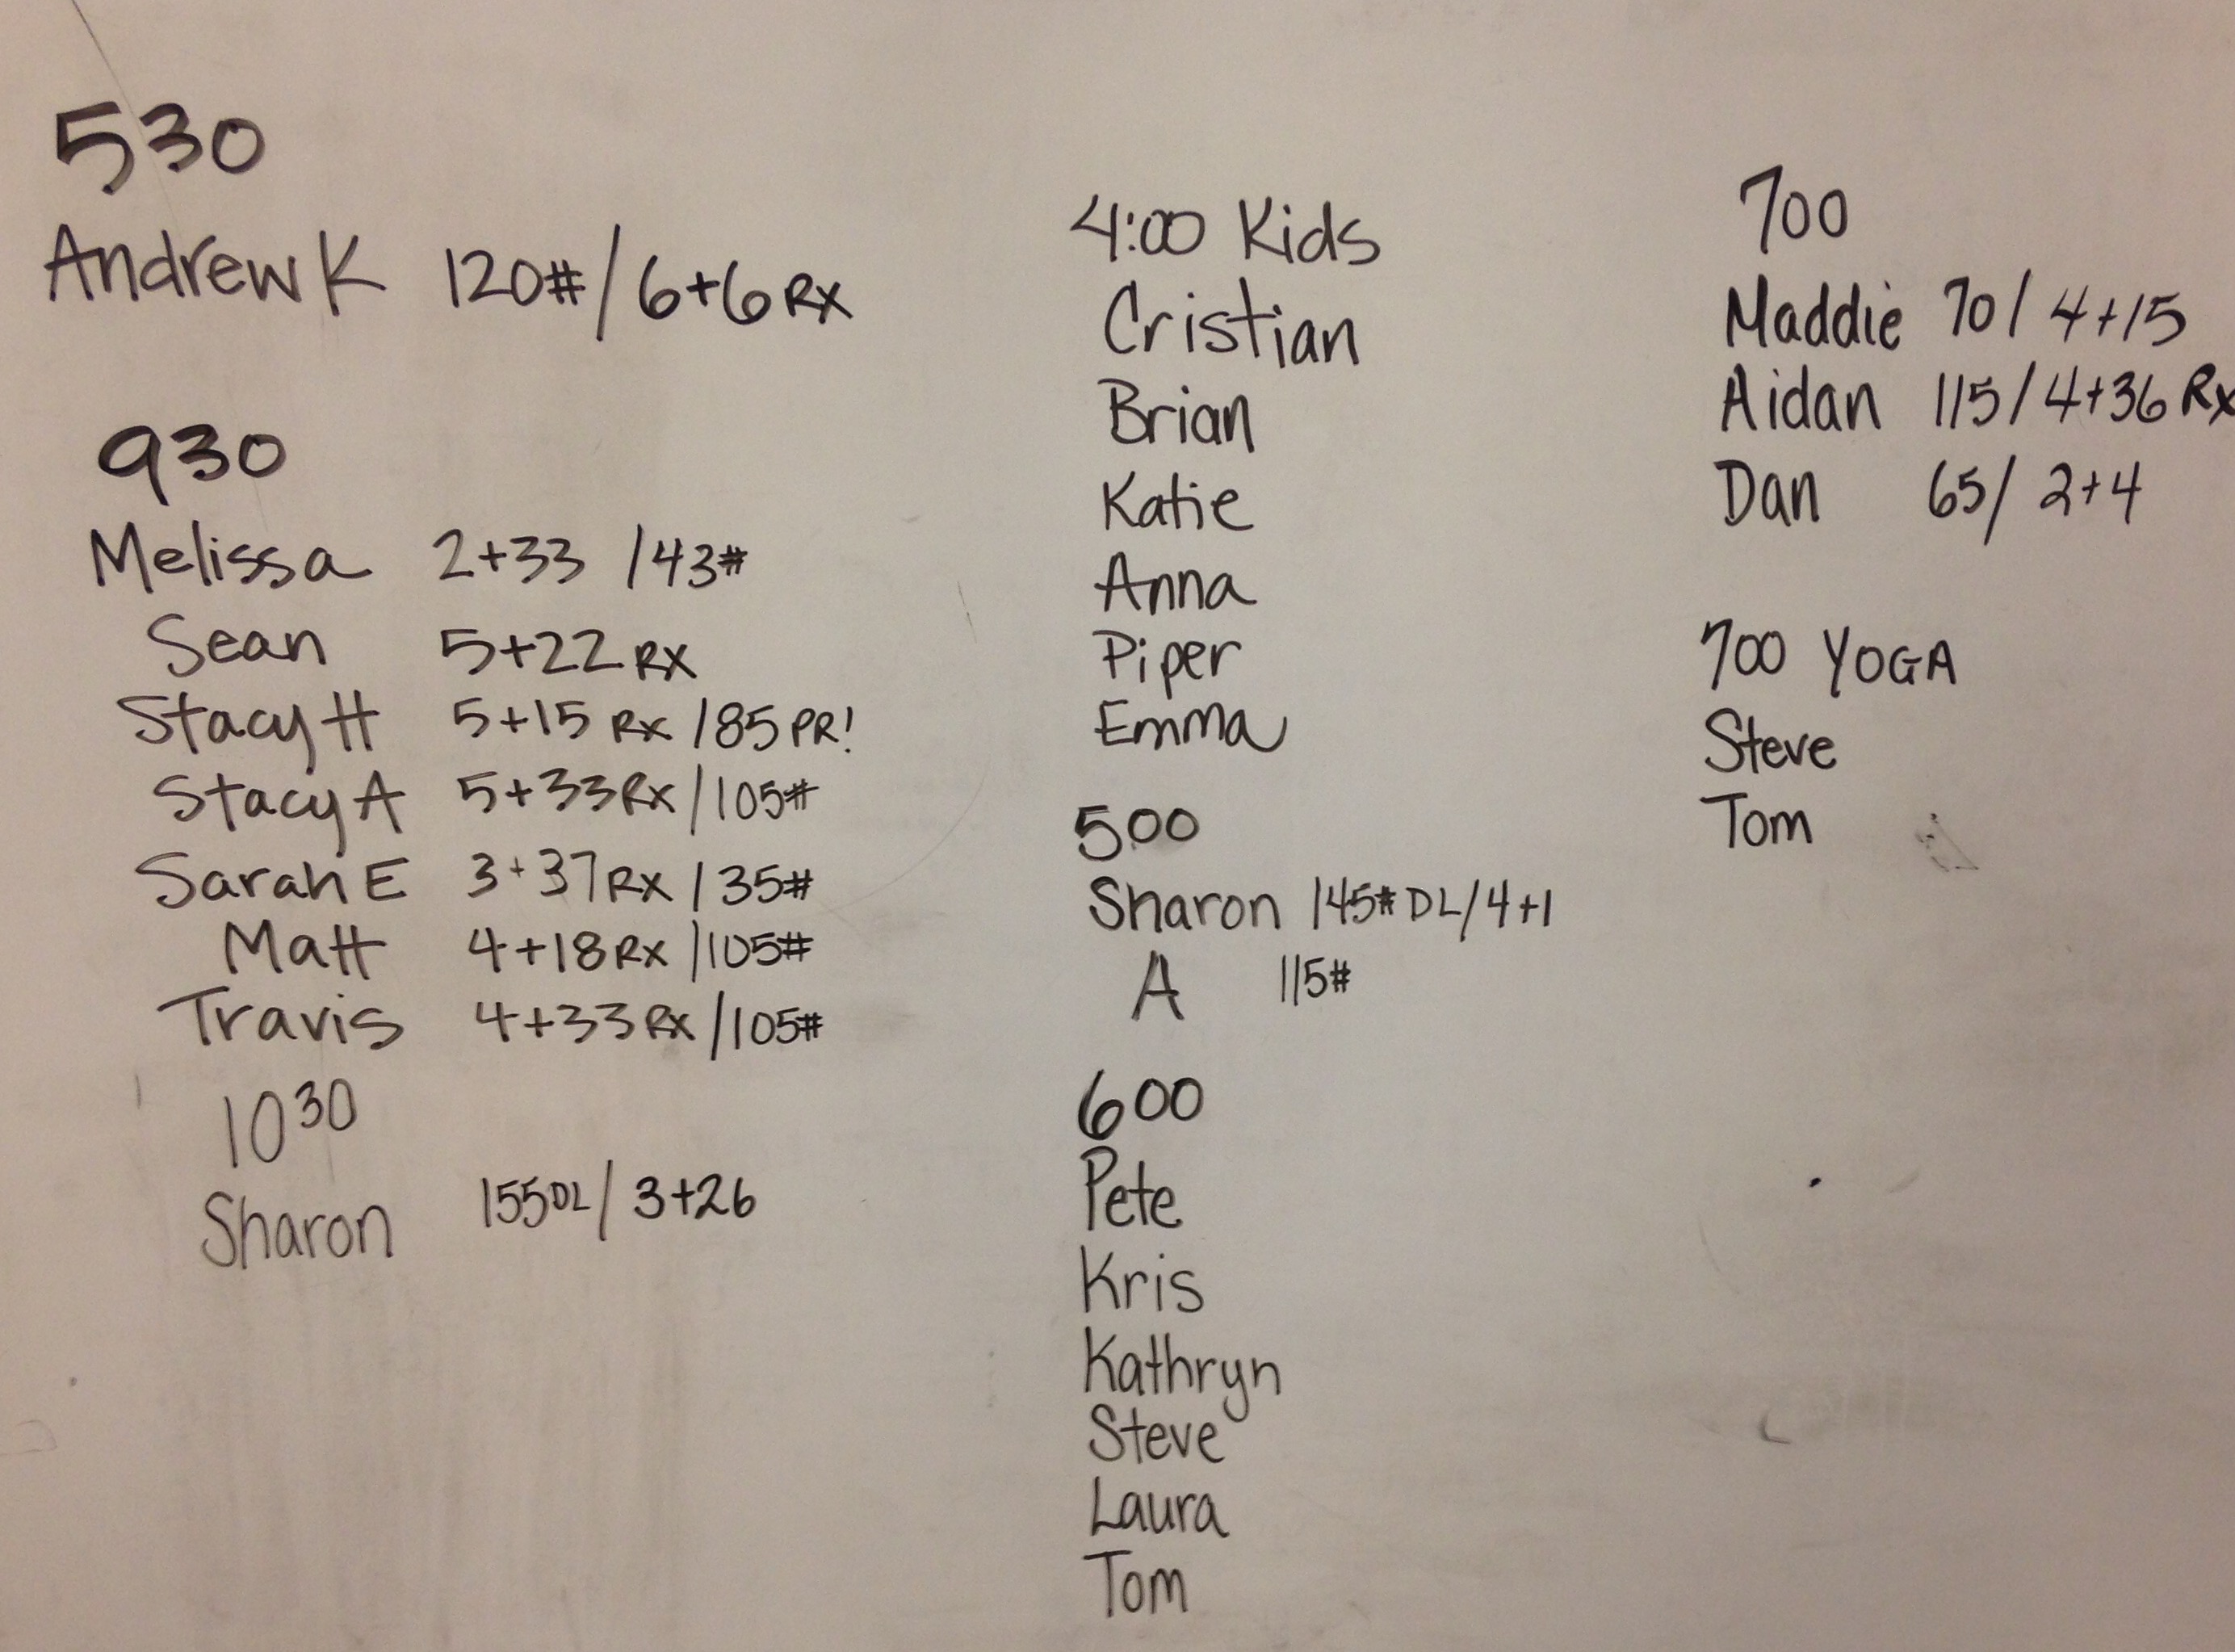 530
Andrew K 120# / 6+6 RX
930
Melissa 2+33 / 43#
Sean 5+22 RX
Stacy H 5+15 RX / 85 PR!
Stacy A 5+33 RX / 105#
Sarah E 3+37 RX / 35#
Matt 4+18 RX / 105#
Travis 4+33 RX / 105#
1030
Sharon 155 DL / 3+26
4:00 Kids
Cristian
Brian
Katie
Anna
Piper
Emma
500
Sharon 145# DL / 4+1
A 115#
600
Pete
Kris
Kathryn
Steve
Laura
Tom
700
Maddie 70 / 4+15
Aidan 115 / 4+36 Rx
Dan 65 / 2+4
700 YOGA
Steve
Tom